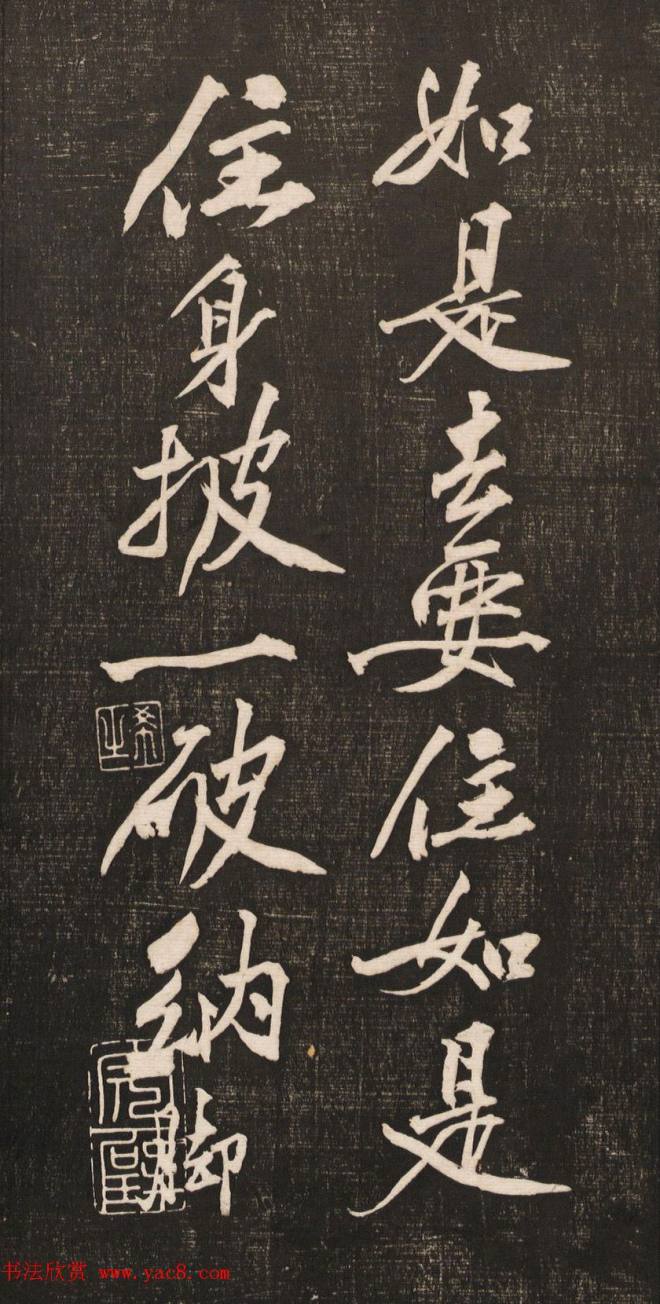 如是去要住如是
住身披一破衲脚
书法欣赏 www.yac8.com